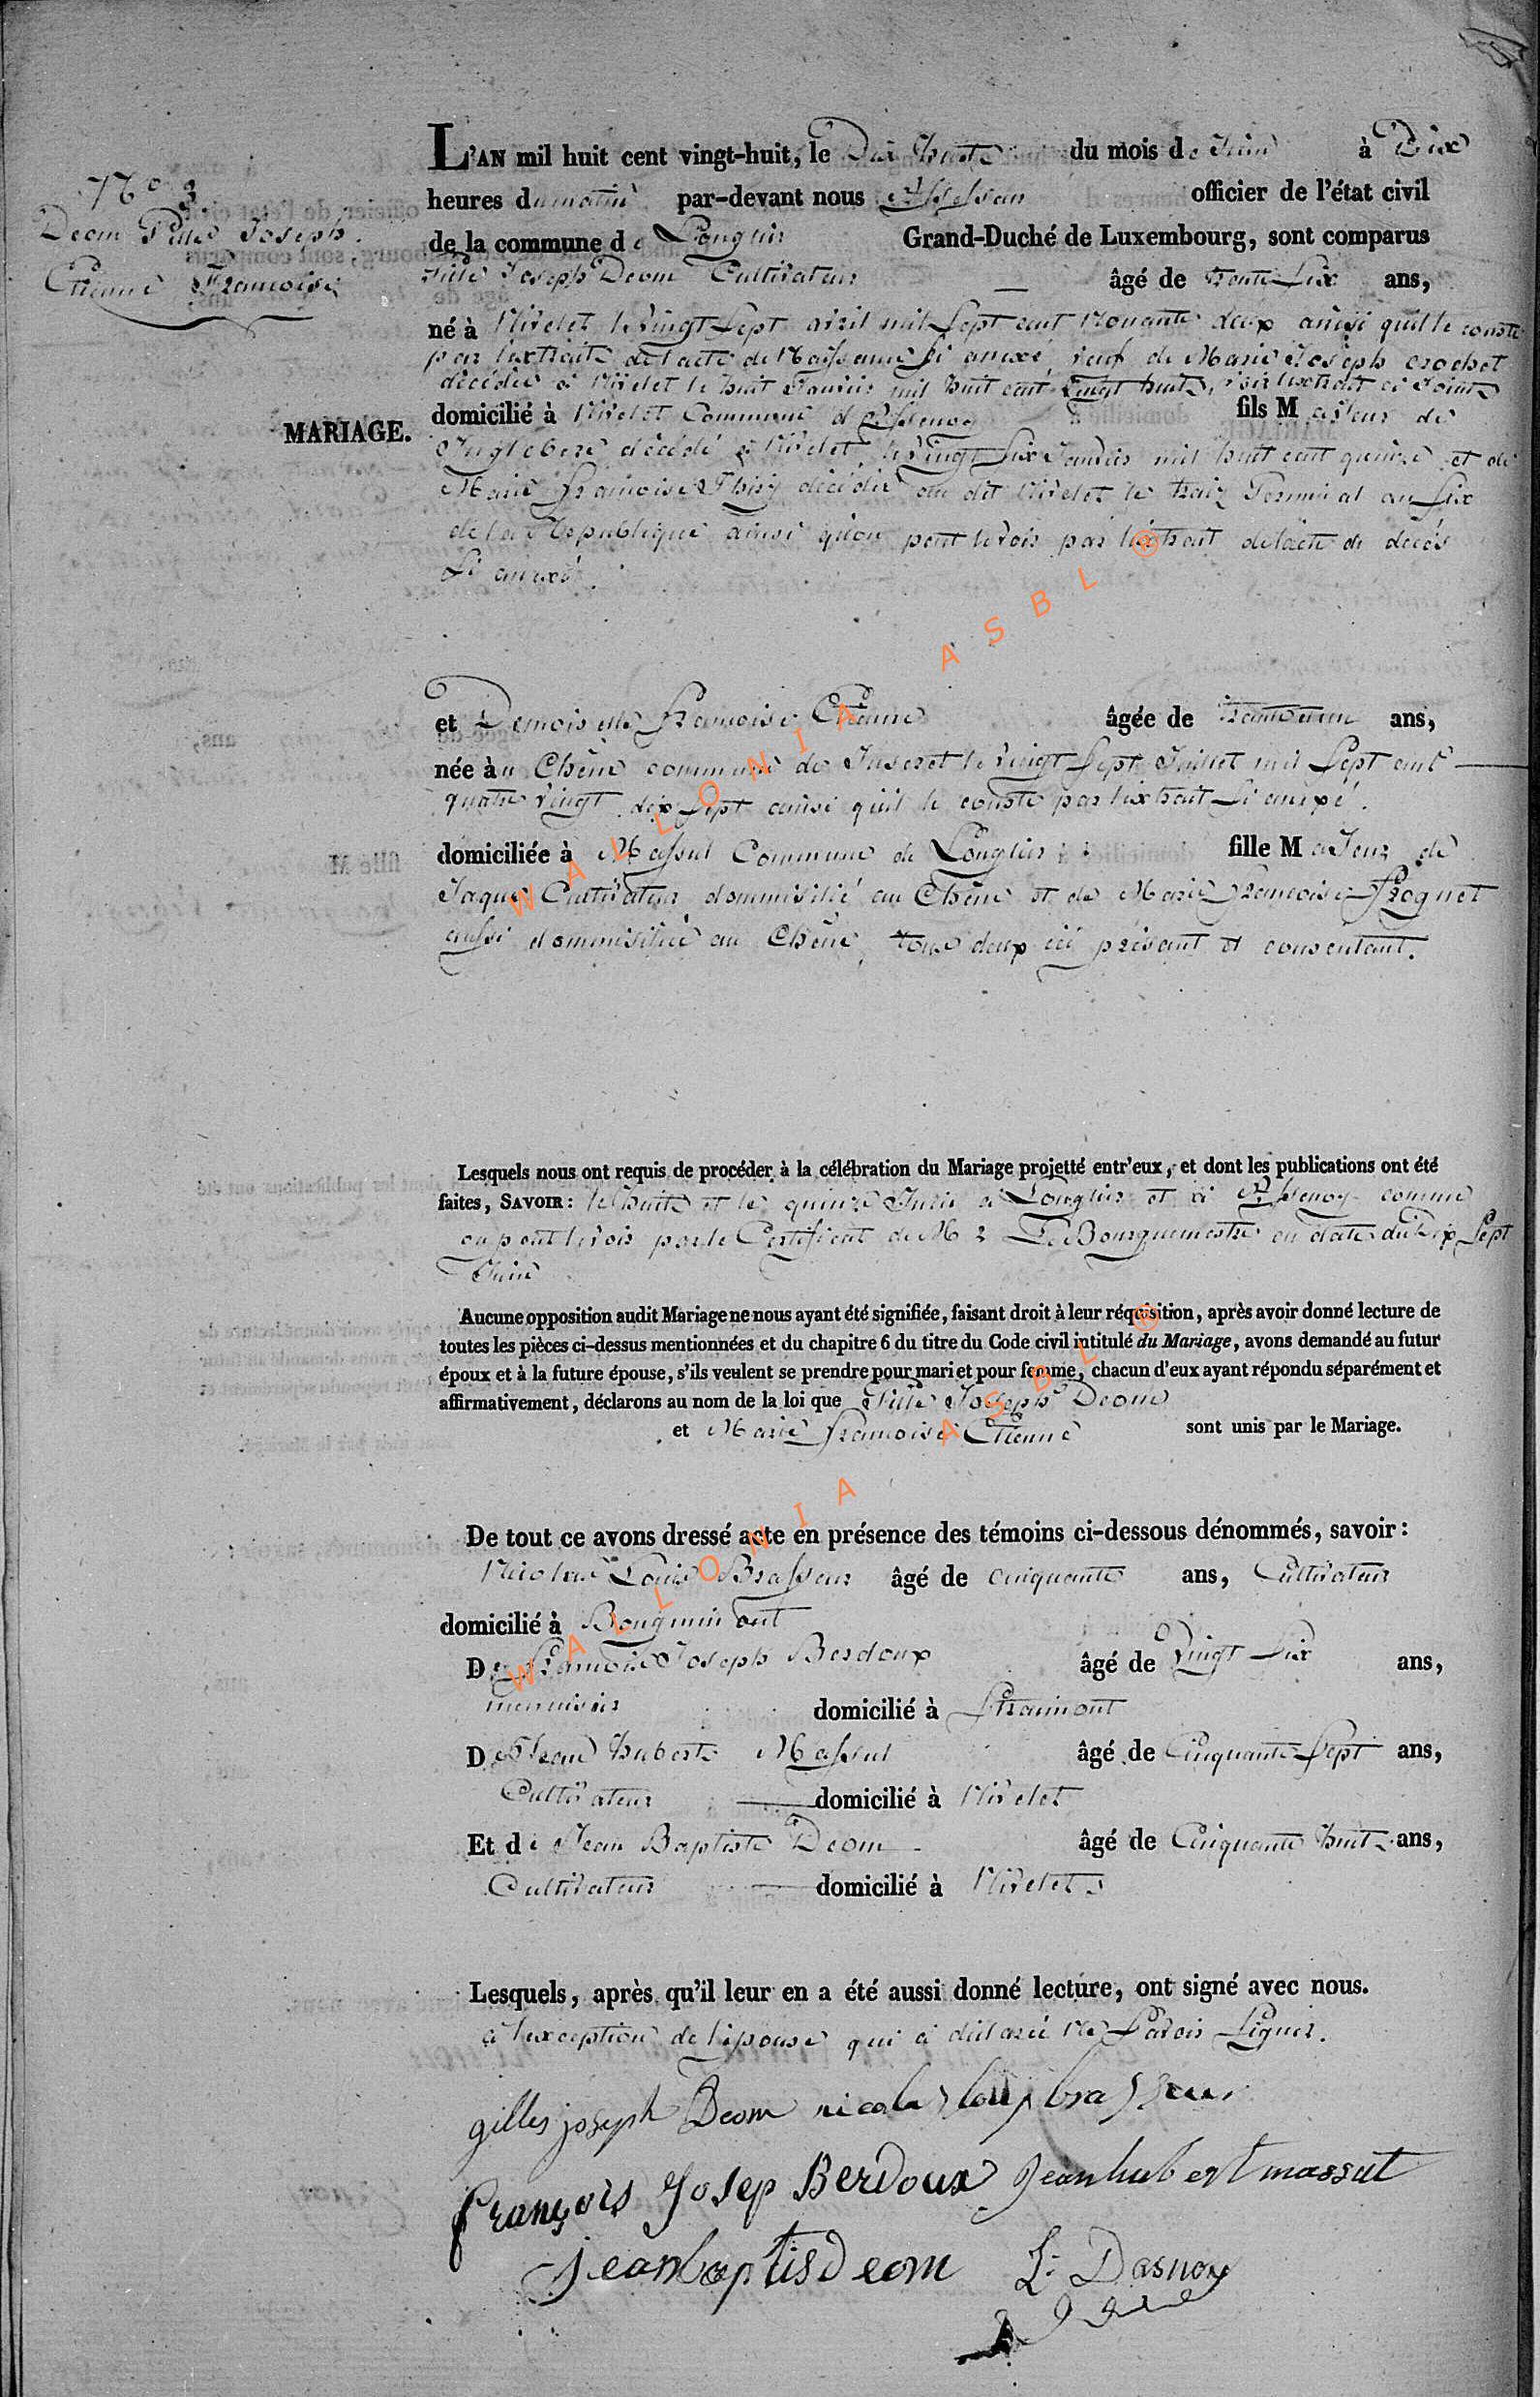 N° 3
Deom Gilles Joseph
Etienne Francoise
MARIAGE.
L'AN mil huit cent vingt-huit, le Dix huite du mois de Juin à Dix
heures du matin par-devant nous officier de l'état civil
de la commune de Longlier Grand-Duché de Luxembourg, sont comparus
Joseph Deom Cultivateur âgé de trente six ans,
né à Nivelet le vingt sept avril mil sept cent nonante deux ainsi quil le conste
par lextraite de lacte de Naissance si anexé veuf de Marie Joseph crochet
décédée à Nivelet le huit Janvier mil huit cent vingt huite, voir lextrait ci Joint
domicilié à Nivelet Commune d Assenoy fils Majeur de
décédé à Nivelet le vingt six Janvier mil huit cent quinze et de
Marie francoise décédée au dit Nivelet le treize Germinal an six
de la Republique ainsi quon peut le voir par lextrait de lacte de décés
si anexé.
et Demoiselle francoise Etienne âgée de trente un ans,
née au Chêne commune de Juseret le vingt sept Juillet mil sept cent
quatre vingt dix sept ainsi quil le conste par lextrait si anexé.
domiciliée à Massul Commune de Longlier fille Majeur de
Jaque Cultivateur dommisilié au Chêne et de Marie francoise frognet
aussi dommisiliée au Chêne, tous deux ici présent et consentant.
Lesquels nous ont requis de procéder à la célébration du Mariage projetté entr'eux, et dont les publications ont été
faites, SAVOIR: le huite et le quinze Juin à Longlier et à Assenoy comme
on peut le voir par le Certificat de Mr Le Bourguemestre en date du Dix sept
Juin
Aucune opposition audit Mariage ne nous ayant été signifiée, faisant droit à leur réquisition, après avoir donné lecture de
toutes les pièces ci-dessus mentionnées et du chapitre 6 du titre du Code civil intitulé du Mariage, avons demandé au futur
époux et à la future épouse, s'ils veulent se prendre pour mari et pour femme, chacun d'eux ayant répondu séparément et
affirmativement, déclarons au nom de la loi que Joseph Deom
et Marie francoise Etienne sont unis par le Mariage.
De tout ce avons dressé acte en présence des témoins ci-dessous dénommés, savoir:
Nicolas Louis Brasseur âgé de cinquante ans, Cultivateur
domicilié à Bougnimont
De Francois Joseph Berdoux âgé de vingt six ans,
menuisier domicilié à Straimont
De Jean hubert Massut âgé de Cinquante sept ans,
Cultivateur domicilié à Nivelet
Et de Jean Baptiste Deom âgé de Cinquante huit ans,
Cultivateur domicilié à Nivelet
Lesquels, après qu'il leur en a été aussi donné lecture, ont signé avec nous.
à lexception de lépouse qui a déclarée Ne savoir signer.
gilles joseph Deom nicolas louis brasseur
françois Josep Berdoux jean hubert massut
jeanbaptis Deom L: Dasnoy
WALLONIA ASBL ®
WALLONIA ASBL ®